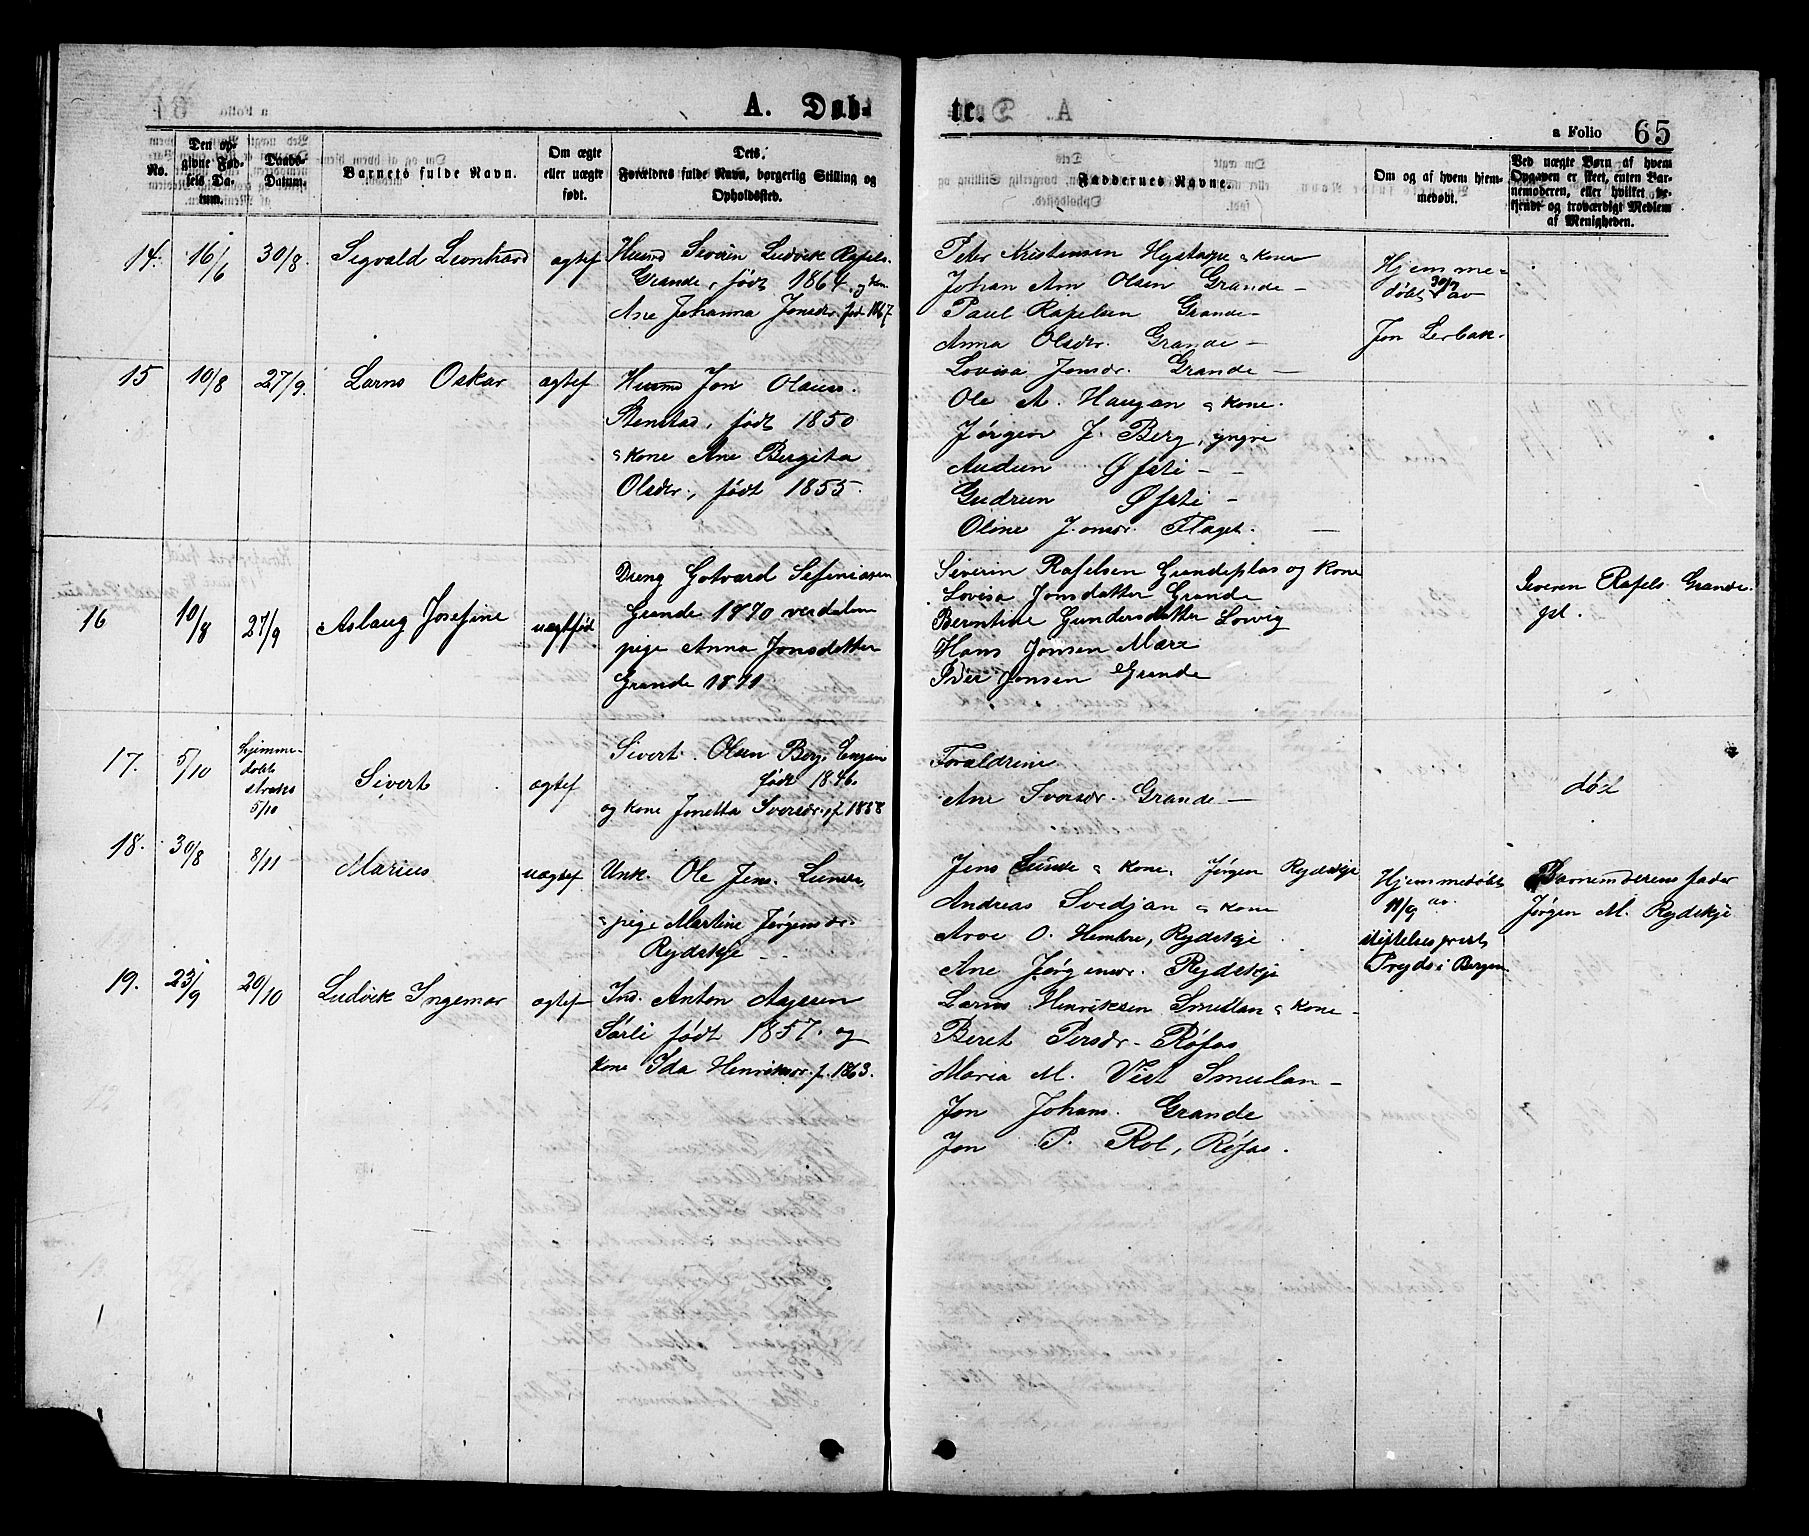 A. Døb-
te.
a Folio 65
No.
Den op-
givne Fød-
sels Da-
tum.
Daabs-
Datum.
Barnets fulde Navn.
Om ægte
eller uægte
født.
Dets
Forældres fulde Navn, borgerlig Stilling og
Opholdssted.
Faddernes Navne.
Om og af hvem hjem-
medøbt.
Ved uægte Børn af hvem
Opgaven er skeet, enten Bar-
nemoderen, eller hvilket be-
kjendt og troværdigt Medlem
af Menigheden.
14. 16/6 30/8. Sigvald Leonhard ægtef
Husmd Severin Ludvik Rafels.
Grande, født 1864, og kone
Ane Johanna Jonsdr. fød 1867.
Peter Kristensen & kone
Johan Arn Olsen Grande —
Paul Rafelsen Grande —
Anna Olsdr. Grande —
Lovisa Jonsdr. Grande —
Hjemme-
døbt 30/7 av
Jon Lerbak.
15 10/8 27/9. Lorns Oskar ægtef
Husmd Jon Olaus.
Stenstad, født 1850
& kone Ane Bergita
Olsdr., født 1855.
Ole A. Haugan & kone.
Jørgen J. Berg, yngre
Audun Øfsti —
Gudrun Øfsti —
Oline Jonsdr. Flaget. —
16 10/8 27/9 Aslaug Josefine uægtefød
Dreng Gotvard Sefaniasen
Grande 1870 verdalen
pige Anna Jonsdatter
Grande 1871
Severin Rafelsen Grandeplas og kone
Lovisa Jonsdatter Grande
Berntine Gundersdatter Lovig
Hans Jonsen Marx
Iver Jonsen Grande
Severen Rafels. Grande-
pl.
17. 5/10
Hjemme-
døbt
straks
5/10
Sivert ægtef
Sivert Olsen Berg, Engen
født 1846.
og kone Jonetta Iversdr. f. 1858
Forældrene
Ane Iversdr. Grande —
død
18. 30/8 8/11 Marius uægtef
Unk. Ole Jens. Lunde,
& pige Martine Jørgensdr.
Rydskje
Jens Lunde & kone, Jørgen Rydskje
Andreas Svedjan & kone
Arve O. Hembre, Rydskje
Ane Jørgensdr. Rydskje
Hjemmedøbt
11/9 av.
stiftelsesprest
Tryds i Bergen
Barnemoderens fader
Jørgen M. Rydskje
19. 23/9 20/10 Ludvik Ingemar ægtef
Ins. Anton Aagesen
Sørli født 1857. og
kone Ida Henriksdr. f. 1863.
Lorns Henriksen Smulan & kone —
Beret Persdr. Røfas
Maria M. Vist Smulan —
Jon Johans. Grande
Jon P. Rol, Røfas.